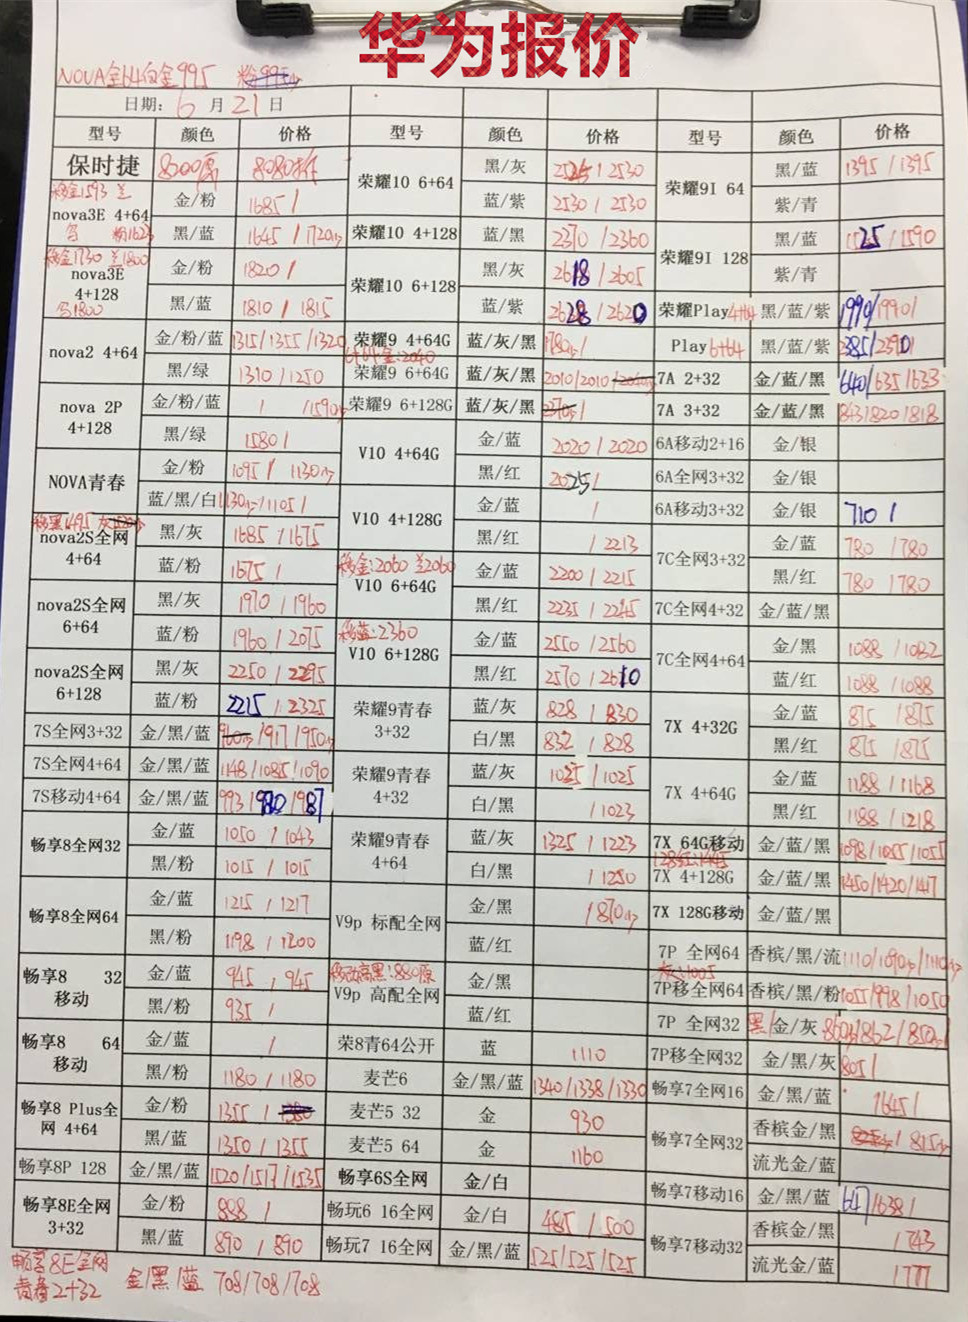 华为报价
NOVA全64白金995 粉995
日期: 6 月 21 日
型号 颜色 价格 型号 颜色 价格 型号 颜色 价格
保时捷 8000 8080
荣耀10 6+64 黑/灰 2525 / 2530
蓝/紫 2530 / 2530
荣耀9I 64 黑/蓝 1395 / 1395
紫/青
nova3E 4+64 金/粉 1685 /
黑/蓝 1645 / 1720
荣耀10 4+128 蓝/黑 2370 / 2360
荣耀9I 128 黑/蓝 1525 / 1590
紫/青
移金1730 兰1800
nova3E 4+128 金/粉 1820 /
黑/蓝 1810 / 1815
荣耀10 6+128 黑/灰 2618 / 2605
蓝/紫 2628 / 2620
荣耀Play4+64 黑/蓝/紫 1990/1990/
nova2 4+64 金/粉/蓝 1315/1355/1320
黑/绿 1310 / 1250
荣耀9 4+64G 蓝/灰/黑 1780 /
6+64金:2040
荣耀9 6+64G 蓝/灰/黑 2010/2010/
Play6+64 黑/蓝/紫 2385/2390
7A 2+32 金/蓝/黑 640/635/633
nova 2P 4+128 金/粉/蓝 / /1590
黑/绿 1580 /
荣耀9 6+128G 蓝/灰/黑 2370 /
7A 3+32 金/蓝/黑 843/820/818
V10 4+64G 金/蓝 2020 / 2020
黑/红 2025 /
6A移动2+16 金/银
6A全网3+32 金/银
NOVA青春 金/粉 1095 / 1130
蓝/黑/白 1130 / 1105 /
V10 4+128G 金/蓝 /
黑/红 / 2213
6A移动3+32 金/银 710 /
移黑1495
nova2S全网 4+64 黑/灰 1685 / 1675
蓝/粉 1675 /
移金:2060 兰2060
V10 6+64G 金/蓝 2200 / 2215
黑/红 2235 / 2245
7C全网3+32 金/蓝 780 / 780
黑/红 780 / 780
nova2S全网 6+64 黑/灰 1970 / 1960
蓝/粉 1960 / 2075
7C全网4+32 金/蓝/黑
移蓝:2360
V10 6+128G 金/蓝 2550 / 2560
黑/红 2570 / 2610
7C全网4+64 金/黑 1088 / 1082
蓝/红 1088 / 1088
nova2S全网 6+128 黑/灰 2250 / 2295
蓝/粉 2215 / 2325
荣耀9青春 3+32 蓝/灰 828 / 830
白/黑 832 / 828
7X 4+32G 金/蓝 875 / 875
黑/红 875 / 875
7S全网3+32 金/黑/蓝 960/917/950
7S全网4+64 金/黑/蓝 1148/1085/1090
荣耀9青春 4+32 蓝/灰 1025 / 1025
白/黑 / 1023
7X 4+64G 金/蓝 1188 / 1168
黑/红 1188 / 1218
7S移动4+64 金/黑/蓝 993/980/987
畅享8全网32 金/蓝 1050 / 1043
黑/粉 1015 / 1015
荣耀9青春 4+64 蓝/灰 1325 / 1223
白/黑 / 1250
7X 64G移动 金/蓝/黑 1098/1055/1055
7X 4+128G 金/蓝/黑 1450/1420/1417
畅享8全网64 金/蓝 1215 / 1217
黑/粉 1198 / 1200
V9p 标配全网 金/黑 / 1870
蓝/红
7X 128G移动 金/蓝/黑
7P 全网64 香槟/黑/流 1110/1090/1110
畅享8 32 移动 金/蓝 945 , 945
黑/粉 935 /
V9p 高配全网 金/黑
蓝/红
7P移全网64 香槟/黑/粉 1055/998/1050
7P 全网32 黑/金/灰 860/862/850
畅享8 64 移动 金/蓝 /
黑/粉 1180 / 1180
荣8青64公开 蓝 1110
麦芒6 金/黑/蓝 1340/1338/1330
7P移全网32 金/黑/灰 805 /
畅享7全网16 金/黑/蓝 1645 /
畅享8 Plus全网 4+64 金/粉 1355 /
黑/蓝 1350 / 1355
麦芒5 32 金 930
麦芒5 64 金 1160
畅享7全网32 香槟金/黑 / 815
流光金/蓝
畅享8P 128 金/黑/蓝 1520/1517/1535
畅享6S全网 金/白
畅享7移动16 金/黑/蓝 647/638/
畅享8E全网 3+32 金/粉 888 /
黑/蓝 890 / 890
畅玩6 16全网 金/白 485 / 500
畅玩7 16全网 金/黑/蓝 525/525/525
畅享7移动32 香槟金/黑 / 743
流光金/蓝 / 777
畅享8E全网
青春2+32 金/黑/蓝 708/708/708